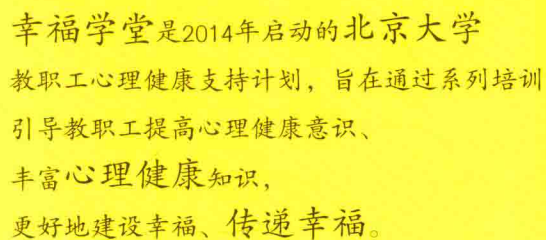 幸福学堂是2014年启动的北京大学
教职工心理健康支持计划，旨在通过系列培训
引导教职工提高心理健康意识、
丰富心理健康知识，
更好地建设幸福、传递幸福。